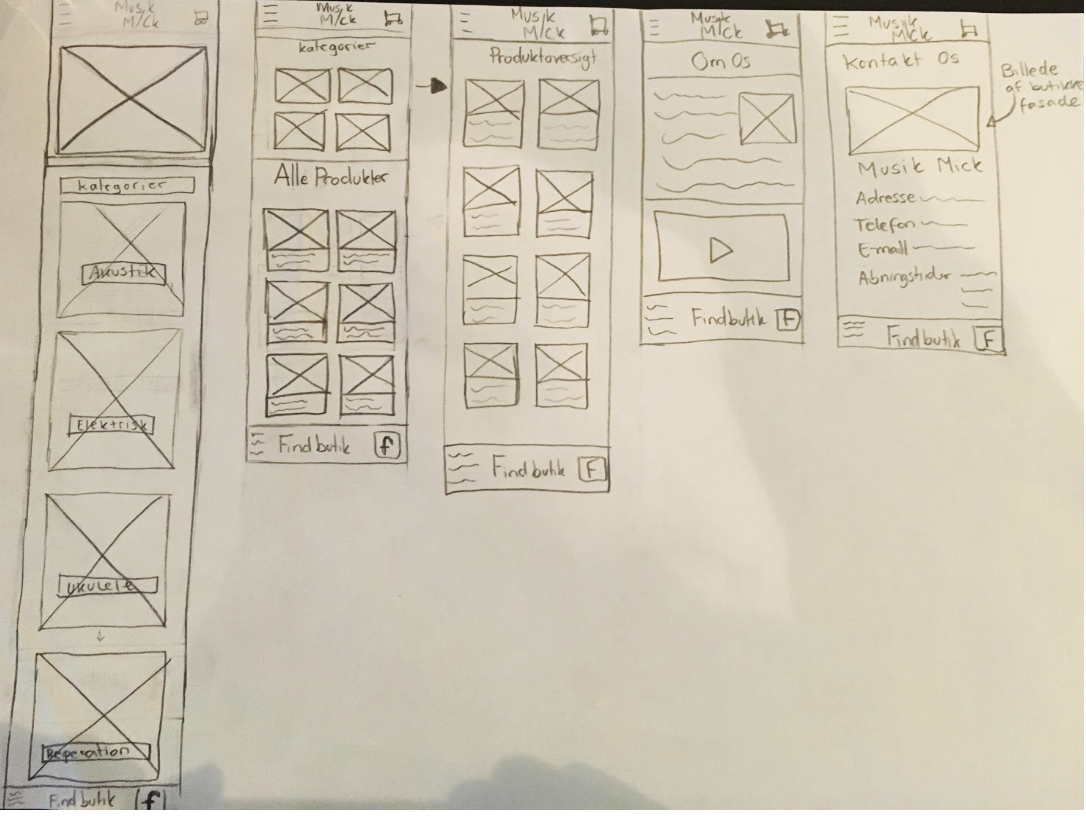 Musik
M/ck
Kategorier
Akustik
Elektrisk
Ukulele
Reperation
Find butik
f
Musik
M/ck
Kategorier
Alle Produkter
Find butik
f
Musik
M/ck
Produktoversigt
Find butik
F
Musik
M/ck
Om Os
Find butik
F
Musik
Mick
Kontakt Os
Billede
af butikke
fasade
Musik Mick
Adresse
Telefon
E-mail
Åbningstider
Find butik
F